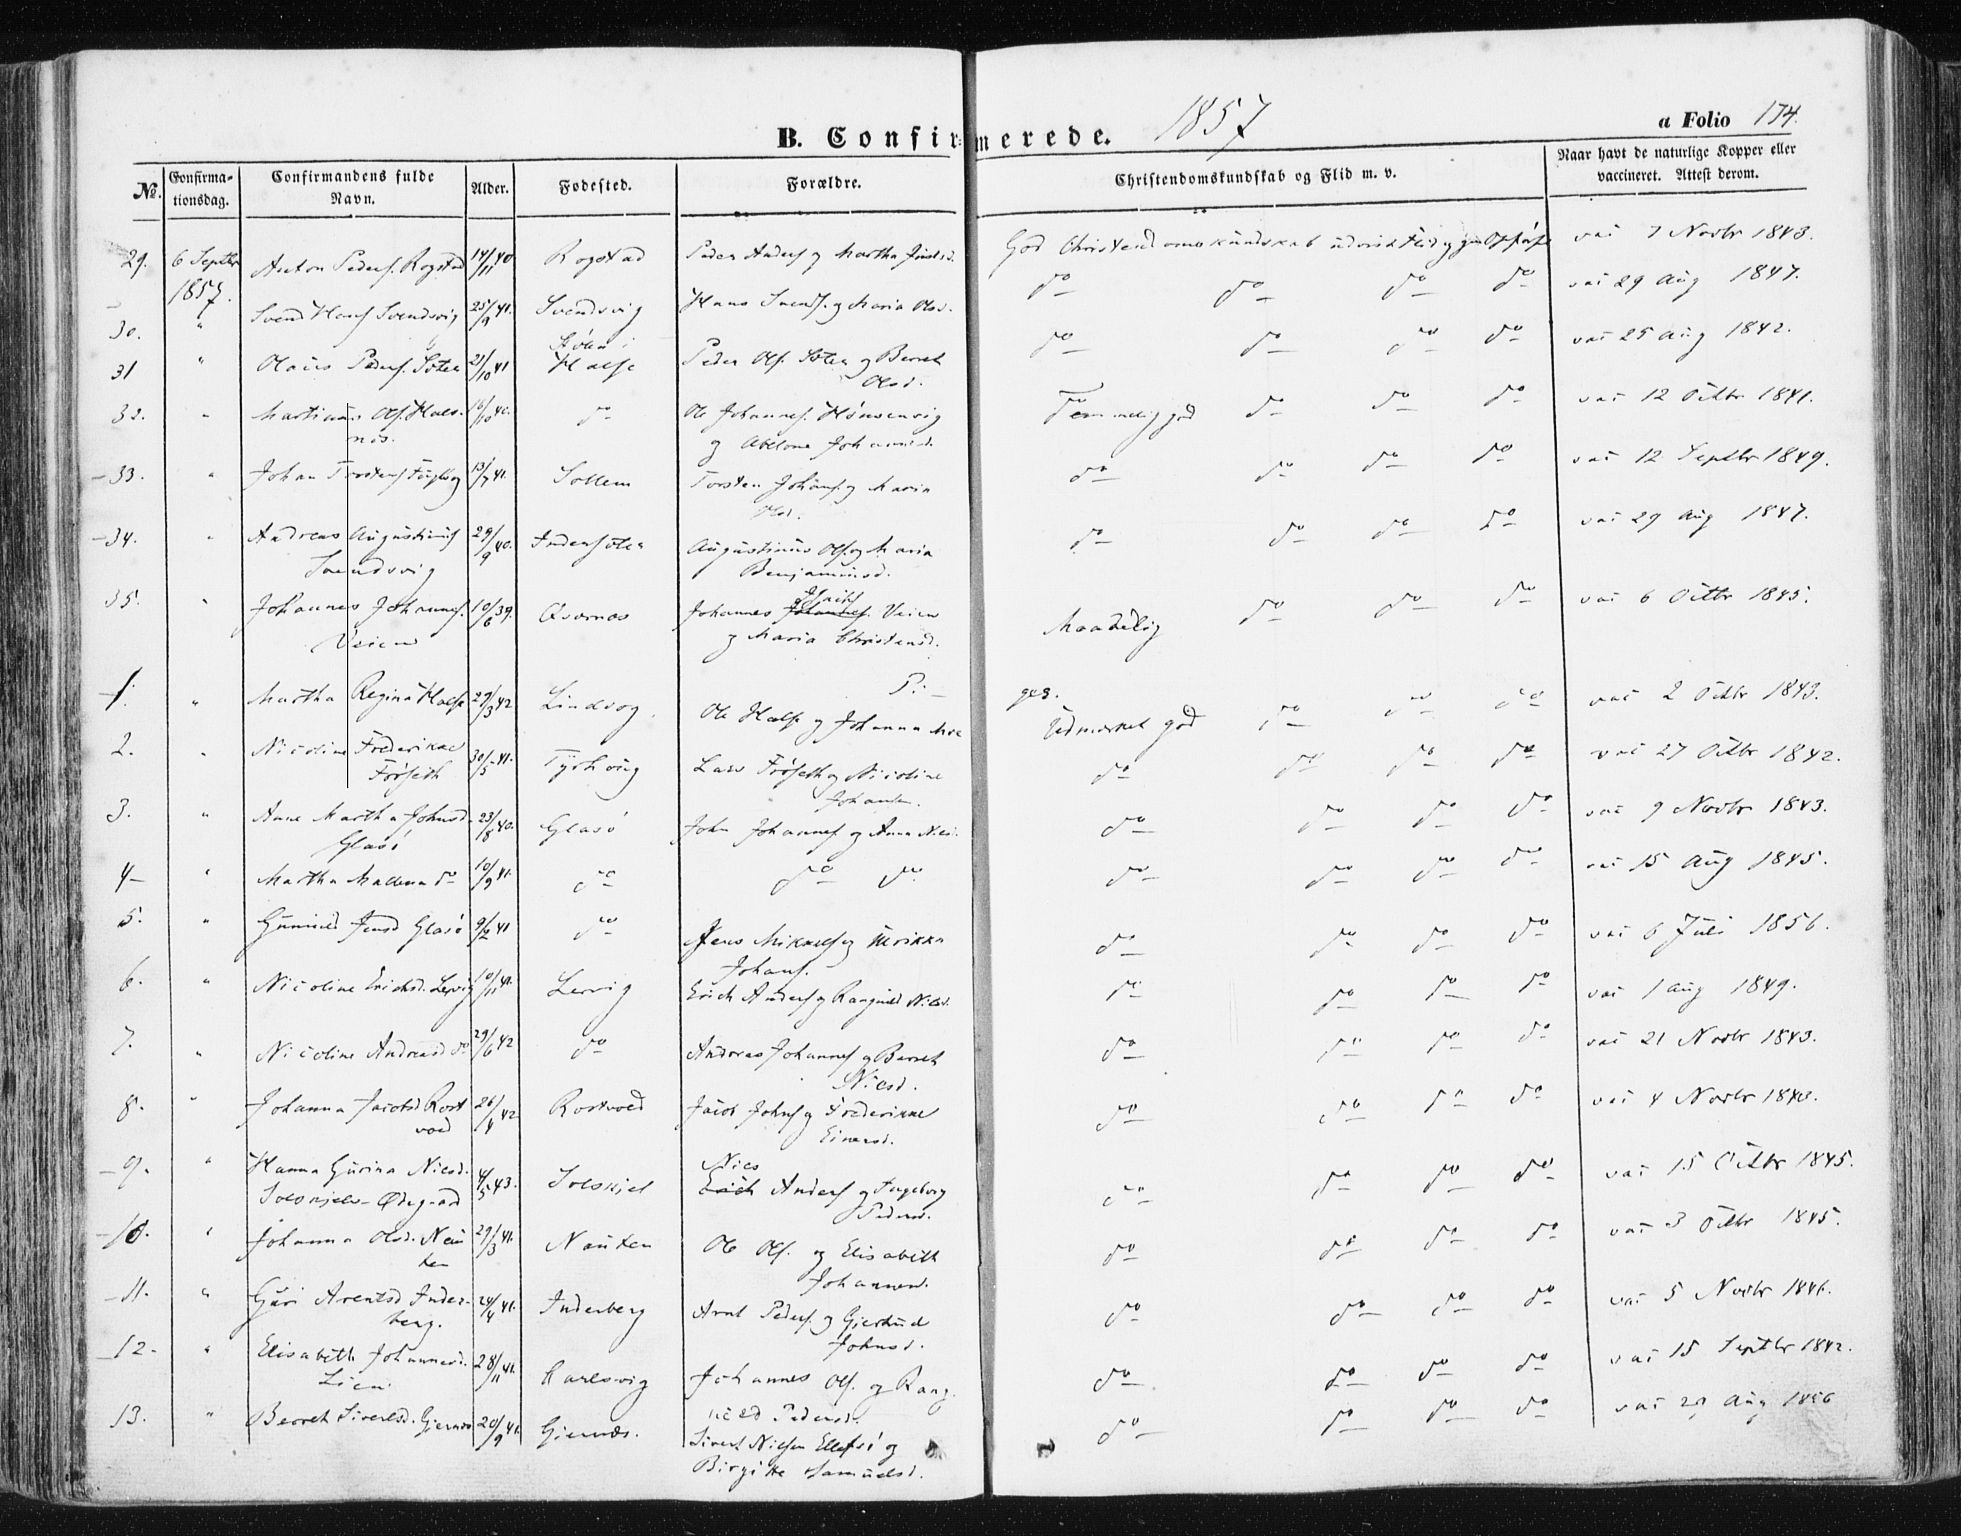 B. Confirmerede. 1857 a Folio 174.
No. Confirmationsdag. Confirmandens fulde Navn. Alder. Fødested. Forældre. Christendomskundskab og Flid m. v. Naar havt de naturlige Kopper eller vaccineret. Attest derom.
29. 6 Septbr 1857. Anton Peders. Rogstad 14/11 40 Rogstad Peder Anders og Martha God Christendomskundskab Flid og vac 7 Novbr 1843.
30. " Svend Hans Svendsvig 25/9 41. Svendsvig Hans Svends. og Maria Olsd. do do do do vac 29 Aug 1847.
31 " Olaus Peders. Soten 21/10 41 Halse Peder Ols. Soten og Berret Olsd. do do do do vac 25 Aug 1842.
32. " Martinus Ols. Halsnæs. 16/10 40. do Ole Johannes. og Abelone Johannesd. Temmelig god do do do vac 12 Octbr 1841.
33. " Johan Torstens 13/7 41. Sollem Torsten Johans. og Maria Olsd. do do do do vac 12 Septbr 1849.
34. " Andreas Augustinus Svendsvig 29/9 40. Indersoten Augustinus Ols. og Maria Benjaminsd. do do do do vac 29 Aug 1847.
35. " Johannes Johannes. Veien 10/6 39. Qvernæs Johannes Veien og Maria Christensd. Maadelig do do do vac 6 Octbr 1845.
Pi- ger.
1. " Martha Regina Halse 29/3 42 Lindvog Ole Halse og Johanna Moe Udmærket god do do do vac 2 Octbr 1843.
2. " Nicoline Frederikke Frøseth 30/5 41. Tyrhoug Lars Frøseth og Nicoline Johansen. do do do do vac 27 Octbr 1842.
3. " Ane Martha Johnsd. Glasø 23/8 40. Glasø John Johannes og Anna Nilsd. do do do do vac 9 Novbr 1843.
4 " Martha Malena do 10/9 41. do do do do do do do vac 15 Aug 1845.
5. " Gunild Jensd Glasø 9/2 41 do Jens Mikaels og Ulrikka Johans. do do do do vac 6 Juli 1856.
6. " Nicoline Erichsd. Lervig 10/11 41. Lervig Erich Anders og Rangnild Nilsd. do do do do vac 1 Aug 1849.
7. " Nicoline Andreasd do 29/6 42 do Andreas Johannes og Berret Nilsd. do do do do vac 21 Novbr 1843.
8. " Johanna Jacobsd Rostvold 26/4 42 Rostvold Jacob Johns og Frederikke Einersd. do do do do vac 4 Novbr 1843.
9. " Hanna Gurina Nilsd. Solskjels-Ødegaard 4/5 43. Solskjel Nils Erich Anders og Ingeborg Pedersd. do do do do vac 15 Octbr 1845.
10. " Johanna Olsd. Nauten 29/3 41. Nauten Ole Ols. og Elisabeth Johannesd. do do do do vac 3 Octbr 1845.
11. " Guri Arentsd Inderberg. 24/4 41. Inderberg Arnt Peders. og Giertrud Johnsd. do do do do vac 5 Novbr 1846.
12. " Elisabeth Johannesd. Lien 28/11 41. Karlsvig Johannes Ols. og Rangnild Pedersd. do do do do vac 15 Septbr 1842.
13. " Berret Sivertsd. Gjernæs 20/9 41. Gjernæs. Sivert Nilsen Ellefsø og Birgitte Samuelsd. do do do do vac Aug 1856